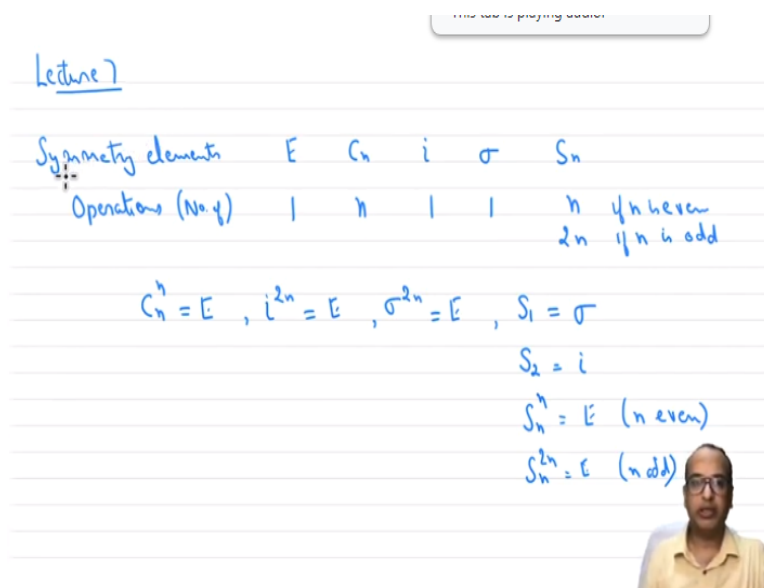 This tab is playing audio.
Lecture 7
Symmetry elements E Cn i σ Sn
Operations (No. of) 1 n 1 1 n if n is even
2n if n is odd
Cₙⁿ = E , i²ⁿ = E , σ²ⁿ = E , S₁ = σ
S₂ = i
Sₙⁿ = E (n even)
Sₙ²ⁿ = E (n odd)